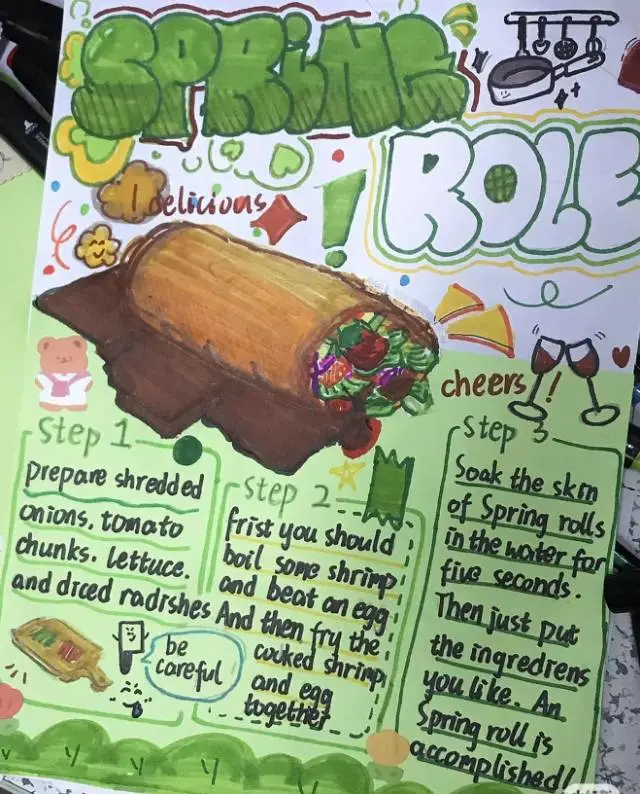 SPRING
ROLE
delicious
cheers!
Step 1
prepare shredded
onions, tomato
chunks. lettuce.
and diced radishes
be
careful
Step 2
frist you should
boil some shrimp
and beat an egg
And then fry the
cooked shrimp
and egg
together
Step 3
Soak the skin
of Spring rolls
in the water for
five seconds.
Then just put
the ingrediens
you like. An
Spring roll is
accomplished!